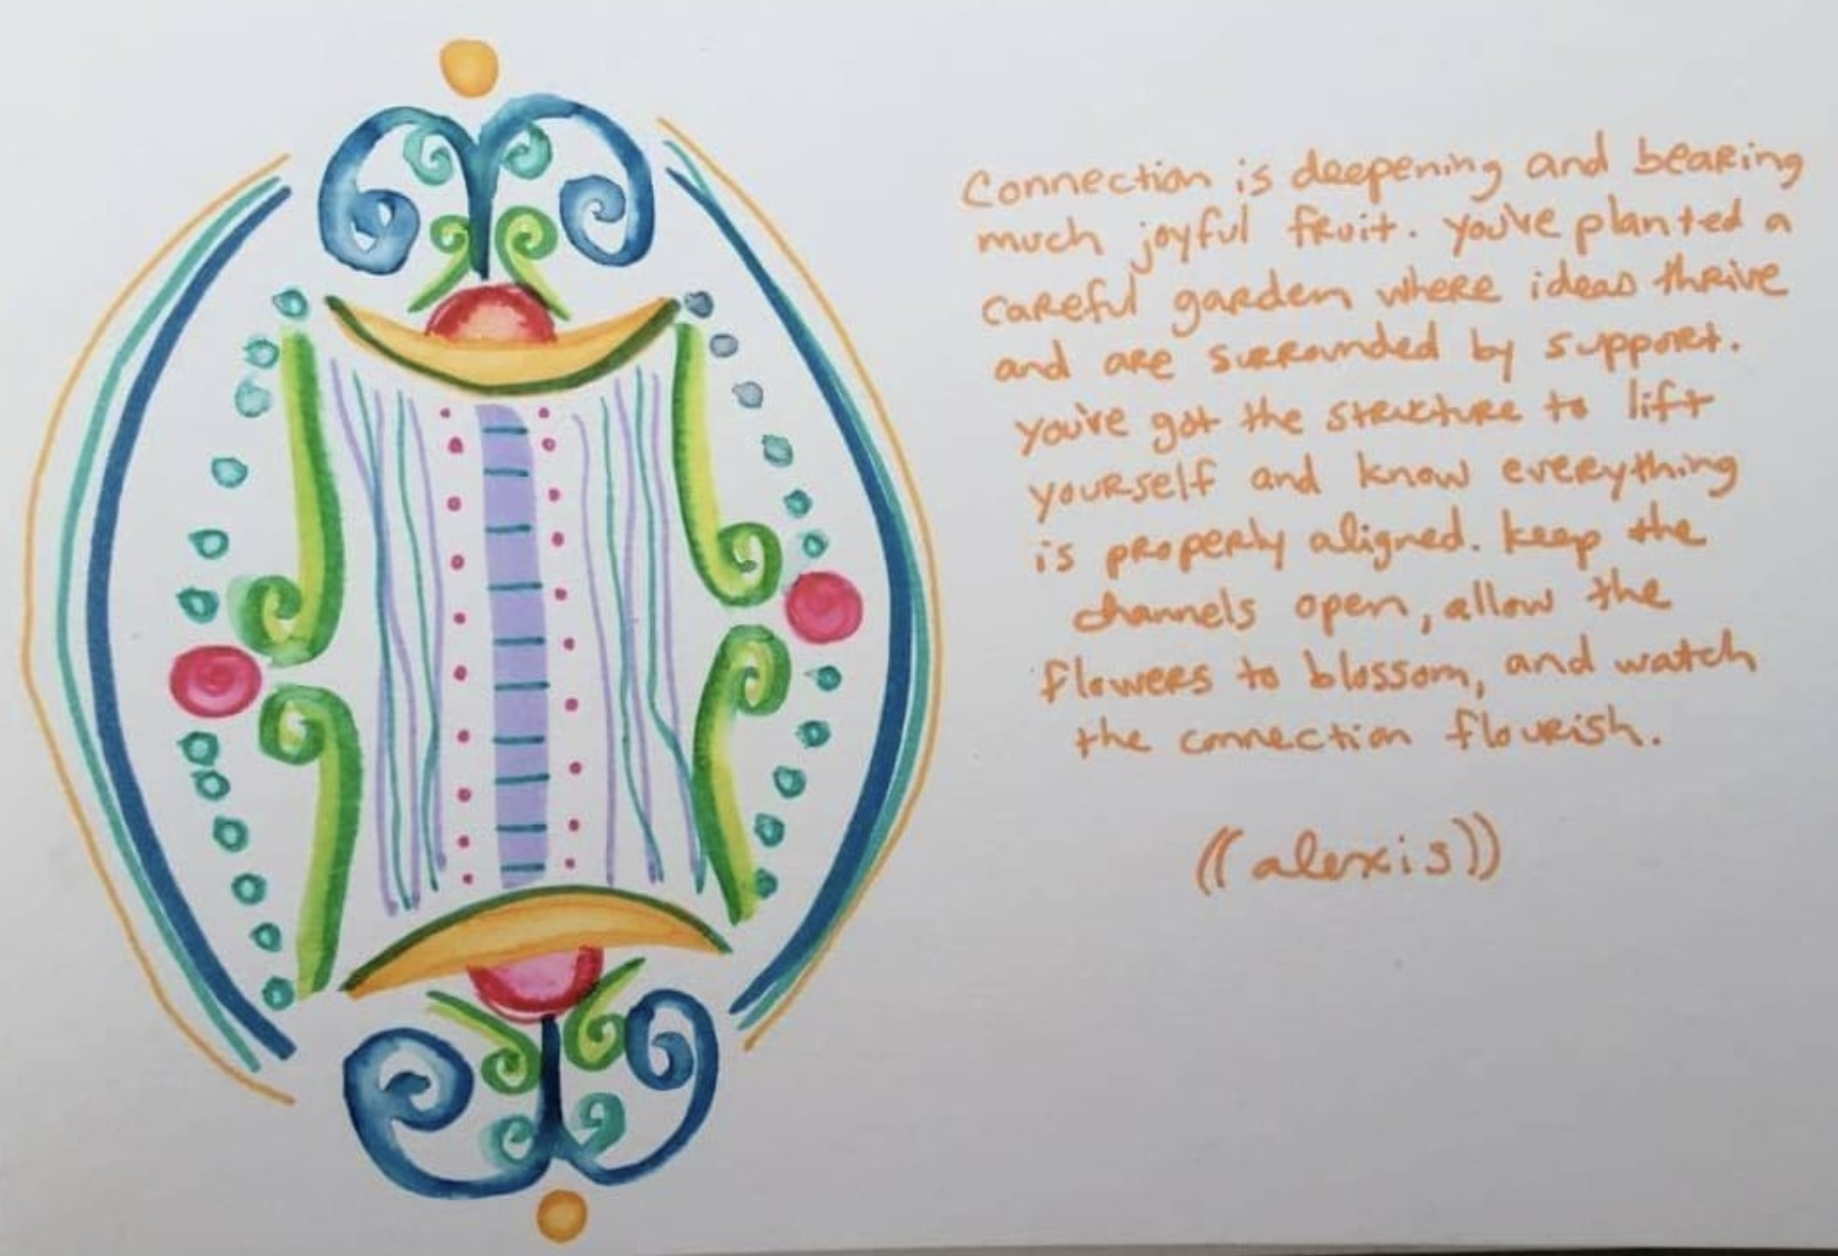 Connection is deepening and bearing
much joyful fruit. you've planted a
careful garden where ideas thrive
and are surrounded by support.
you've got the structure to lift
yourself and know everything
is properly aligned. keep the
channels open, allow the
flowers to blossom, and watch
the connection flourish.
((alexis))